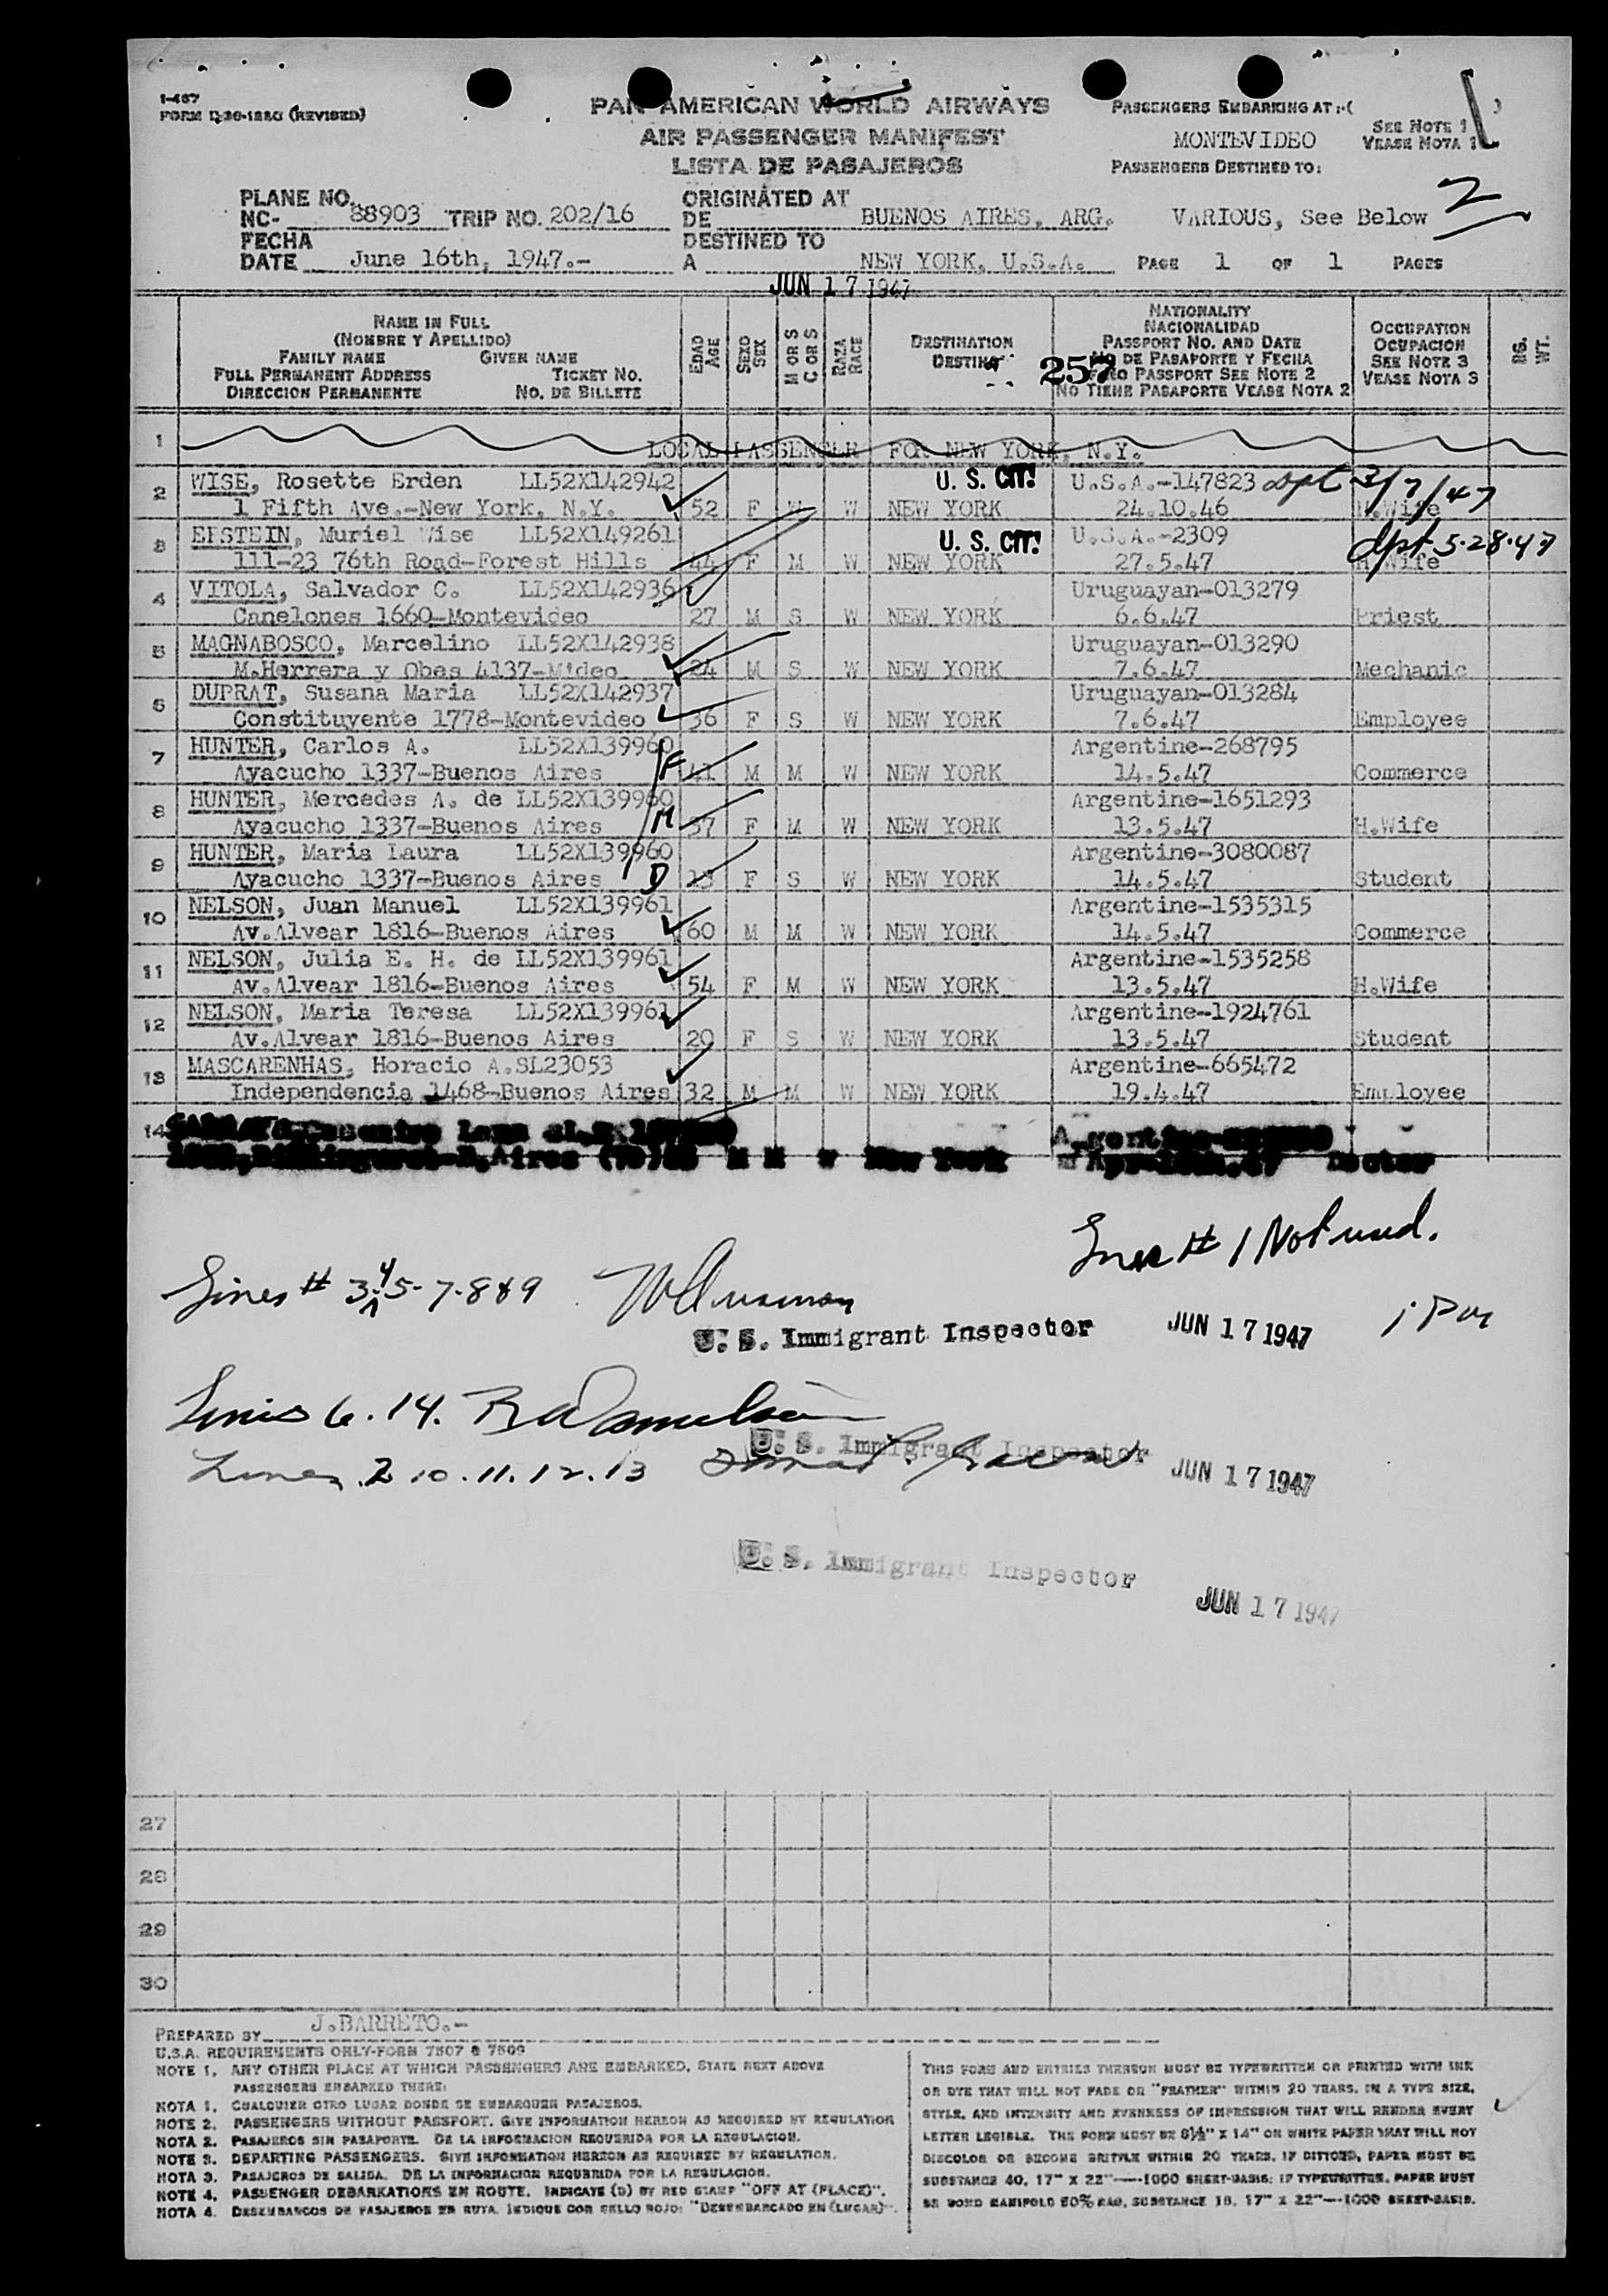 I-457
FORM D-30-122G (REVISED)
PAN AMERICAN WORLD AIRWAYS
AIR PASSENGER MANIFEST
LISTA DE PASAJEROS
PASSENGERS EMBARKING AT :-(
MONTEVIDEO
SEE NOTE 1
VEASE NOTA 1
PASSENGERS DESTINED TO:
VARIOUS, See Below
2
PLANE NO.
NC- 88903 TRIP NO. 202/16
FECHA
DATE June 16th, 1947.-
ORIGINATED AT
DE BUENOS AIRES, ARG.
DESTINED TO
A NEW YORK, U.S.A.
PAGE 1 OF 1 PAGES
JUN 17 1947
NAME IN FULL
(NOMBRE Y APELLIDO)
FAMILY NAME GIVEN NAME
FULL PERMANENT ADDRESS TICKET NO.
DIRECCION PERMANENTE NO. DE BILLETE
EDAD AGE
SEXO SEX
M OR S C OR S
RAZA RACE
DESTINATION
DESTINO
257
NATIONALITY
NACIONALIDAD
PASSPORT NO. AND DATE
NO DE PASAPORTE Y FECHA
NO PASSPORT SEE NOTE 2
NO TIENE PASAPORTE VEASE NOTA 2
OCCUPATION
OCUPACION
SEE NOTE 3
VEASE NOTA 3
WT.
1 LOCAL PASSENGER FOR NEW YORK, N.Y.
2 WISE, Rosette Erden LL52X142942 U. S. CIT! U.S.A.-147823 dpt 3/7/47
1 Fifth Ave.-New York, N.Y. 52 F W NEW YORK 24.10.46 H.Wife
3 EPSTEIN, Muriel Wise LL52X149261 U. S. CIT! U.S.A.-2309 dpt. 5-28-47
111-23 76th Road-Forest Hills 44 F M W NEW YORK 27.5.47 H.Wife
4 VITOLA, Salvador C. LL52X142936 Uruguayan-013279
Canelones 1660-Montevideo 27 M S W NEW YORK 6.6.47 Priest
5 MAGNABOSCO, Marcelino LL52X142938 Uruguayan-013290
M.Herrera y Obes 4137-M'deo 24 M S W NEW YORK 7.6.47 Mechanic
6 DUPRAT, Susana Maria LL52X142937 Uruguayan-013284
Constituyente 1778-Montevideo 36 F S W NEW YORK 7.6.47 Employee
7 HUNTER, Carlos A. LL52X139960 Argentine-268795
Ayacucho 1337-Buenos Aires F 41 M M W NEW YORK 14.5.47 Commerce
8 HUNTER, Mercedes A. de LL52X139960 Argentine-1651293
Ayacucho 1337-Buenos Aires M 37 F M W NEW YORK 13.5.47 H.Wife
9 HUNTER, Maria Laura LL52X139960 Argentine-3080087
Ayacucho 1337-Buenos Aires D 13 F S W NEW YORK 14.5.47 Student
10 NELSON, Juan Manuel LL52X139961 Argentine-1535315
Av.Alvear 1816-Buenos Aires 60 M M W NEW YORK 14.5.47 Commerce
11 NELSON, Julia E. H. de LL52X139961 Argentine-1535258
Av.Alvear 1816-Buenos Aires 54 F M W NEW YORK 13.5.47 H.Wife
12 NELSON, Maria Teresa LL52X139961 Argentine-1924761
Av.Alvear 1816-Buenos Aires 20 F S W NEW YORK 13.5.47 Student
13 MASCARENHAS, Horacio A.SL23053 Argentine-665472
Independencia 1468-Buenos Aires 32 M M W NEW YORK 19.4.47 Employee
14
Aires M M W New York Doctor
Lines # 1 Not used.
Lines # 3-4-5-7-8&9
U. S. Immigrant Inspector JUN 17 1947 1 PM
Lines 6.14.
U. S. Immigrant Inspector
Lines 2 10.11.12.13 JUN 17 1947
U. S. Immigrant Inspector
JUN 17 1947
27
28
29
30
PREPARED BY J.BARRETO.-
U.S.A. REQUIREMENTS ONLY-FORM 7507 & 7509
NOTE 1. ANY OTHER PLACE AT WHICH PASSENGERS ARE EMBARKED, STATE NEXT ABOVE
PASSENGERS EMBARKED THERE:
NOTA 1. CUALQUIER OTRO LUGAR DONDE SE EMBARQUEN PASAJEROS.
NOTE 2. PASSENGERS WITHOUT PASSPORT. GIVE INFORMATION HEREON AS REQUIRED BY REGULATION
NOTA 2. PASAJEROS SIN PASAPORTE. DE LA INFORMACION REQUERIDA POR LA REGULACION.
NOTE 3. DEPARTING PASSENGERS. GIVE INFORMATION HEREON AS REQUIRED BY REGULATION.
NOTA 3. PASAJEROS DE SALIDA. DE LA INFORMACION REQUERIDA POR LA REGULACION.
NOTE 4. PASSENGER DEBARKATIONS EN ROUTE. INDICATE (D) BY RED STAMP "OFF AT (PLACE)".
NOTA 4. DESEMBARCOS DE PASAJEROS EN RUTA. INDIQUE CON SELLO ROJO: "DESEMBARCADO EN (LUGAR)".
THIS FORM AND ENTRIES THEREON MUST BE TYPEWRITTEN OR PRINTED WITH INK
OR DYE THAT WILL NOT FADE OR "FEATHER" WITHIN 20 YEARS, IN A TYPE SIZE,
STYLE, AND INTENSITY AND EVENNESS OF IMPRESSION THAT WILL RENDER EVERY
LETTER LEGIBLE. THE FORM MUST BE 8½" X 14" ON WHITE PAPER THAT WILL NOT
DISCOLOR OR BECOME BRITTLE WITHIN 20 YEARS. IF DITTOED, PAPER MUST BE
SUBSTANCE 40, 17" X 22"—-1000 SHEET-BASIS; IF TYPEWRITTEN, PAPER MUST
BE BOND MANIFOLD 50% RAG, SUBSTANCE 16, 17" X 22"—-1000 SHEET-BASIS.